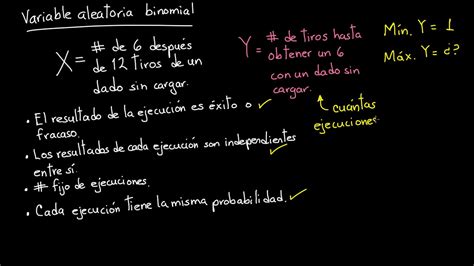 Variable aleatoria binomial
X = # de 6 después
de 12 tiros de un
dado sin cargar.
• El resultado de la ejecución es éxito o
fracaso.
• Los resultados de cada ejecución son independientes
entre sí.
• # fijo de ejecuciones.
• Cada ejecución tiene la misma probabilidad.
Y = # de tiros hasta
obtener un 6
con un dado sin
cargar.
cuántas
ejecucione
Mín. Y = 1
Máx. Y = ¿?